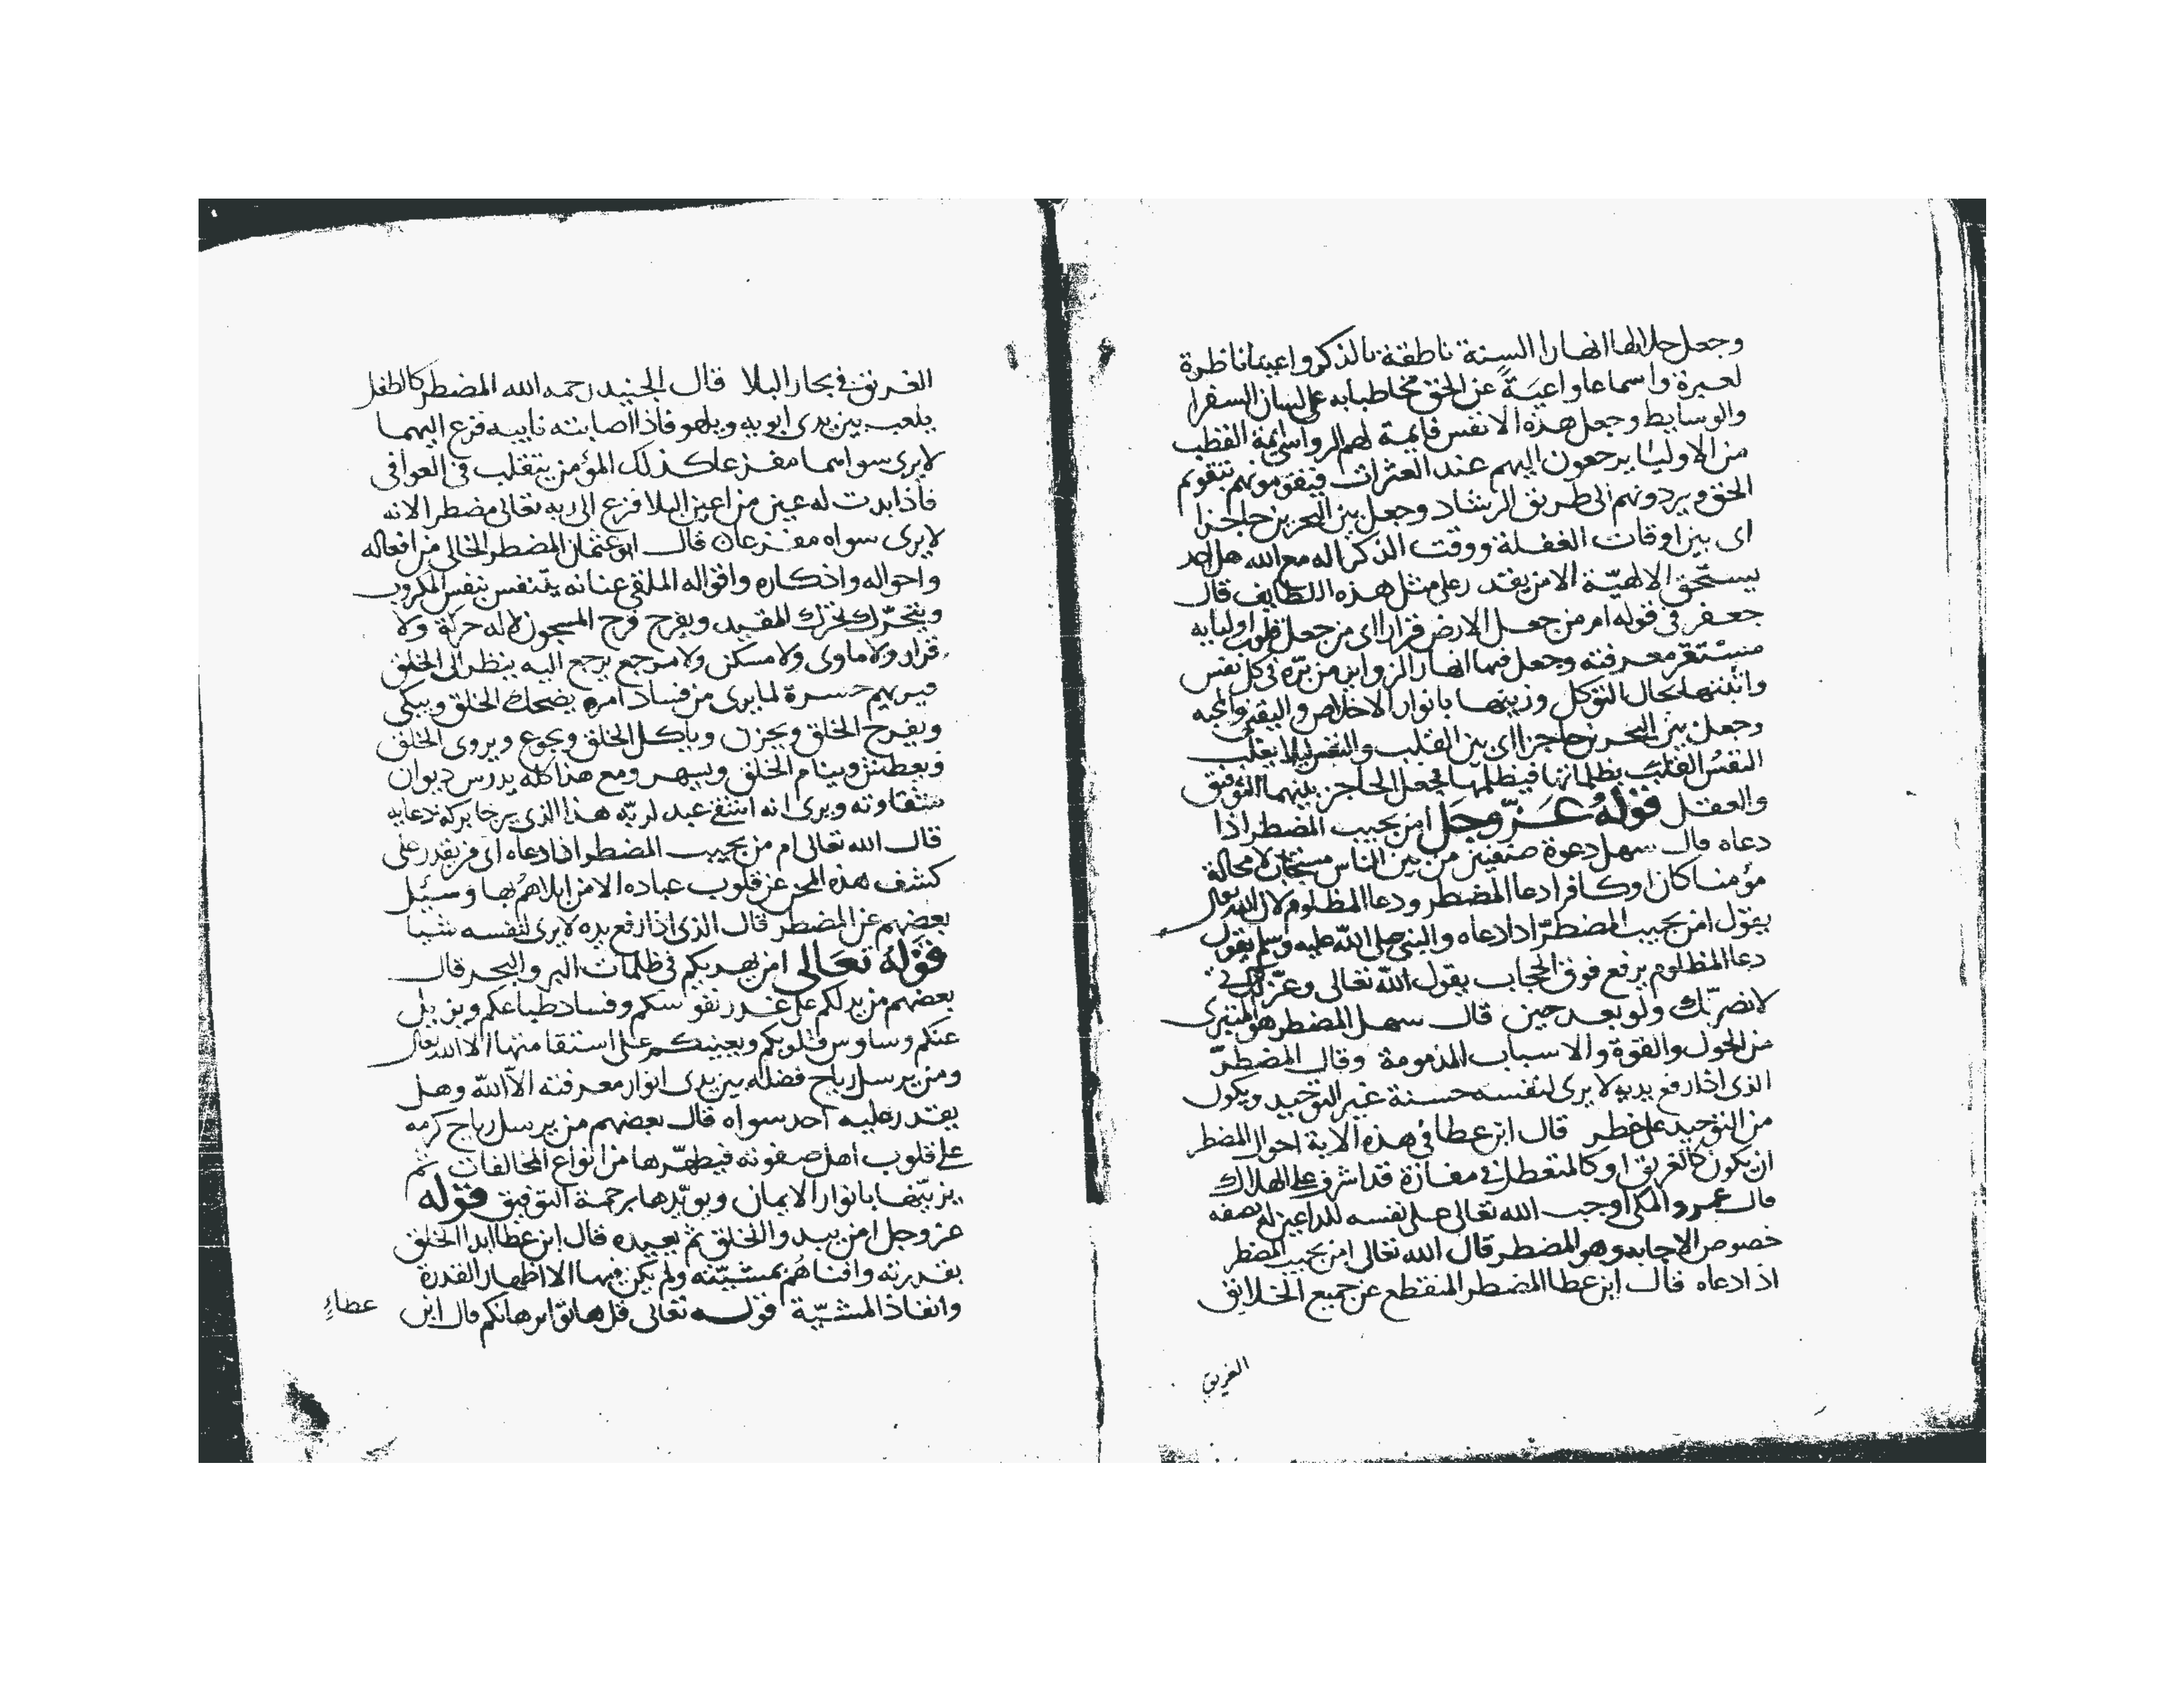 وجعل خلالها انهارا السنة ناطقة بالذكر واعينا ناظرة
لعبرة واسماعا واعية عن الحق مخاطبا به على لسان السفرا
والوسايط وجعل هذه الانفس قايمة لهم الرواسي ثمة القطب
من الاوليا يرجعون اليهم عند العثرات فيقومونهم بتقويم
الحق ويردونهم الى طريق الرشاد وجعل بين البحرين حاجزا
اى بين اوقات الغفلة ووقت الذكر اله مع الله هل احد
يستحق الالهيّة الا من يقدر على مثل هذه اللطايف قال
جعفر في قوله ام من جعل الارض قرارا اى من جعل قلوب اوليايه
مستقر معرفته وجعل فيها انهار الزوايد من برّه في كل نفس
واثبتها بجبال التوكل وزينها بانوار الاخلاص واليقين والمحبه
وجعل بين البحرين حاجزا اى بين القلب والنفس ليلا يغلب
النفس القلب بظلماتها فيظلمها فجعل الحاجز بينهما التوفيق
والعقل قوله عزّ وجل امن يجيب المضطر اذا
دعاه قال سهل دعوة صنفين من بين الناس مستجابة لا محالة
مؤمنا كان او كافرا دعا المضطر ودعا المظلوم لان الله تعالى
يقول امن يجيب المضطرّ اذا دعاه والنبي صلى الله عليه وسلم يقول
دعا المظلوم يرفع فوق الحجاب يقول الله تعالى وعزتي
لانصرنّك ولو بعد حين قال سهل المضطر هو المتبرى
من الحول والقوة والاسباب المذمومة وقال المضطرّ
الذى اذا رفع يديه لا يرى لنفسه حسنة غير التوحيد ويكون
من التوحيد على خطر قال ابن عطا في هذه الاية احوال المضطر
ان يكون كالغريق او كالمتعطل في مفازة قد اشرف على الهلاك
قال عمرو المكي اوجب الله تعالى على نفسه للداعين له بصفه
خصوص الاجابه وهو المضطر قال الله تعالى امن يجيب المضطر
اذا دعاه قال ابن عطا المضطر المنقطع عن جميع الخلايق
الغريق
الغريق في بحار البلا قال الجنيد رحمه الله المضطر كالطفل
يلعب بين يدى ابويه ويلهو فاذا اصابته نايبه فزع اليهما
لا يرى سواهما مفزعا كذلك المؤمن يتقلب في العوافى
فاذا بدت له عين من اعين البلا فزع الى ربه تعالى مضطر الانه
لا يرى سواه مفزعا قال ابو عثمان المضطر الخالى من افعاله
واحواله واذكاره واقواله الملقى عنانه يتنفس بنفس المكروب
ويتحرّك تحرك المقيد ويفرح فرح المسجون لا له حركة ولا
قرار ولا ماوى ولا مسكن ولا مرجع يرجع اليه ينظر الى الخلق
فيريهم حسرة لما يرى من فساد امره يضحك الخلق ويبكى
ويفرح الخلق ويحزن وياكل الخلق ويجوع ويروى الخلق
ويعطش وينام الخلق ويسهر ومع هذا كله يدرس ديوان
شقاوته ويرى انه اشقى عبد لربّه هذا الذى يرجا بركة دعايه
قال الله تعالى ام من يجيب المضطر اذا دعاه اى من يقدر على
كشف هذه المحن عن قلوب عباده الا من ابلاهم بها وسئل
بعضهم عن المضطر قال الذى اذا رفع يده لا يرى لنفسه شيا
قوله تعالى امن يهديكم في ظلمات البر والبحر قال
بعضهم من يدلكم على غدر نفوسكم وفساد طباعكم ويزيل
عنكم وساوس قلوبكم ويعينكم على استقامتها الا الله تعالى
ومن يرسل رياح فضله بين يدى انوار معرفته الا الله وهل
يقدر عليه احد سواه قال بعضهم من يرسل رياح كرمه
على قلوب اهل صفوته فيطهّرها من انواع المخالفات ثم
يزيّنها بانوار الايمان ويويّدها برحمة التوفيق قوله
عز وجل امن يبدو الخلق ثم يعيده قال ابن عطا ابدا الخلق
بقدرته وافناهم بمشيّته ولم يكن منها الا اظهار القدرة
وانفاذ المشيّة قوله تعالى قل هاتوا برهانكم قال ابن
عطاءٍ